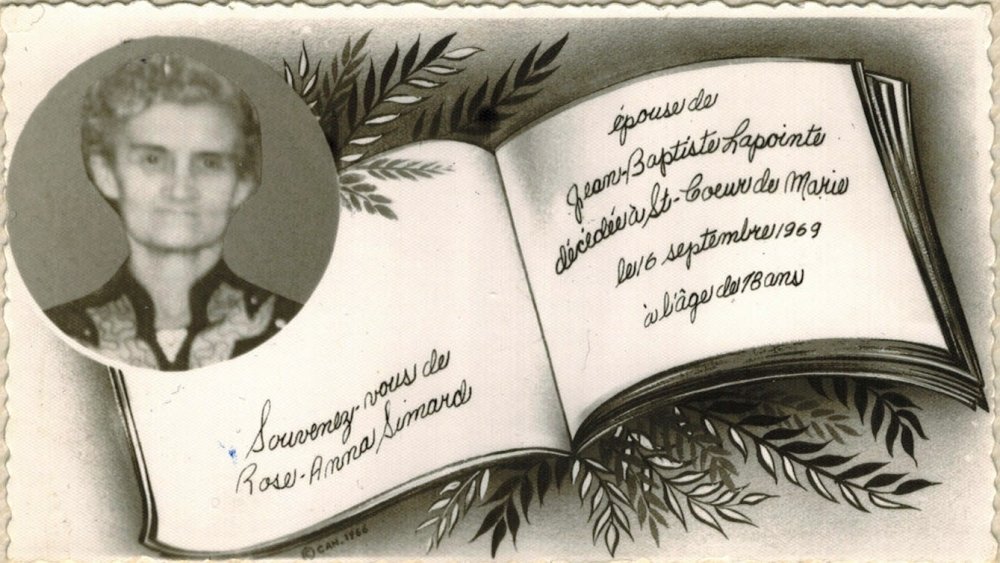 Souvenez-vous de
Rose-Anna Simard
épouse de
Jean-Baptiste Lapointe
décédée à St-Coeur de Marie
le 16 septembre 1969
à l'âge de 78 ans
© CAN. 1966